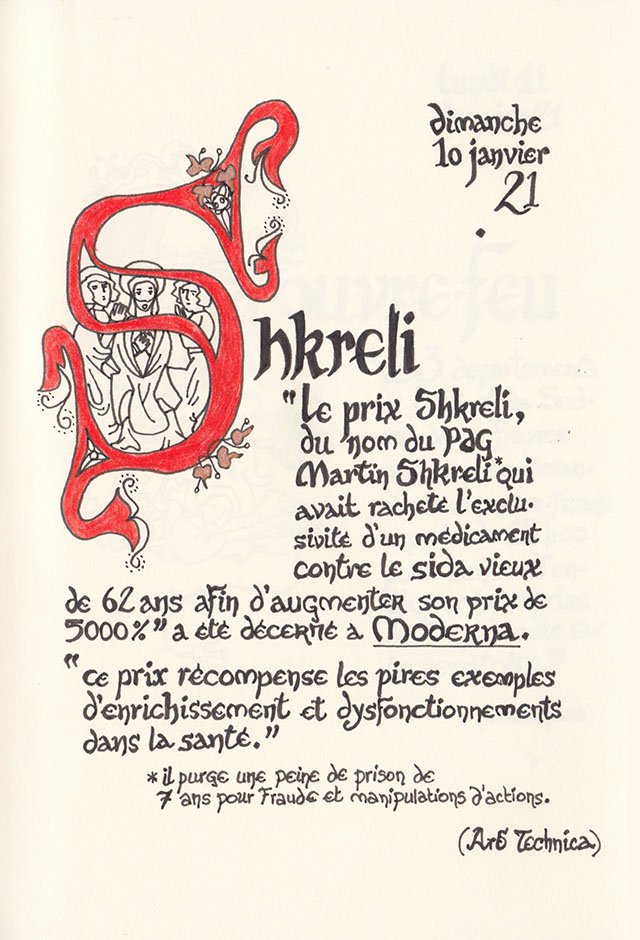 dimanche
10 janvier
21
.
Shkreli
"Le prix Shkreli,
du nom du PAG
Martin Shkreli* qui
avait racheté l'exclu-
sivité d'un médicament
contre le sida vieux
de 62 ans afin d'augmenter son prix de
5000%" a été décerné à Moderna.
"ce prix récompense les pires exemples
d'enrichissement et dysfonctionnements
dans la santé."
* il purge une peine de prison de
7 ans pour Fraude et manipulations d'actions.
(Ars Technica)